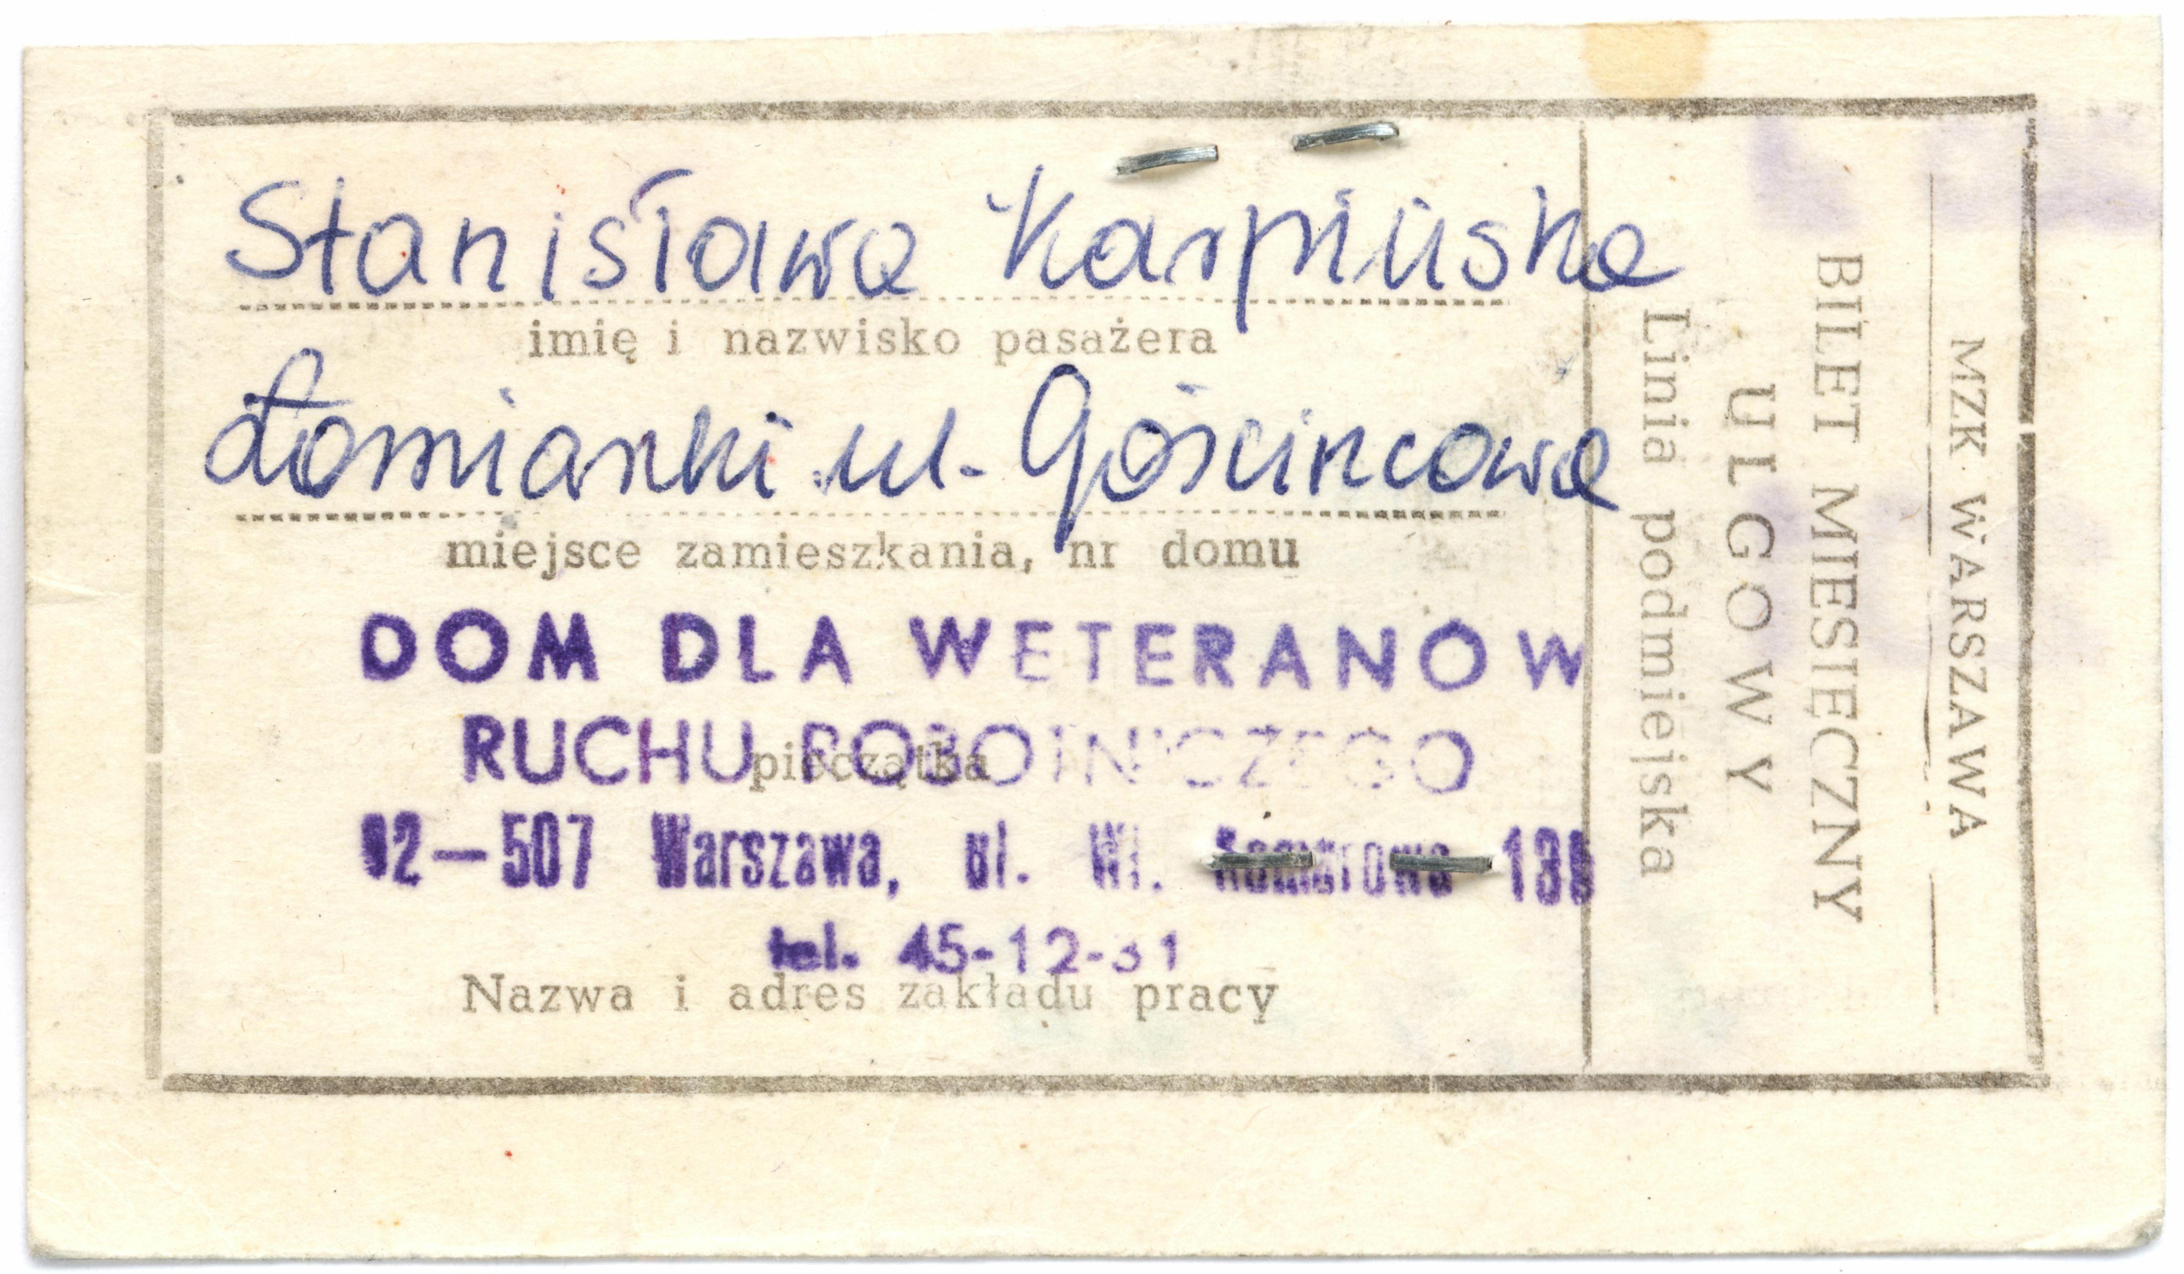 Stanisława Karpińska
imię i nazwisko pasażera
Łomianki ul. Gościncowa
miejsce zamieszkania, nr domu
DOM DLA WETERANÓW
RUCHU ROBOTNICZEGO
pieczątka
02—507 Warszawa, ul. Wł. Komarowa
tel. 45-12-31
Nazwa i adres zakładu pracy
MZK WARSZAWA
BILET MIESIĘCZNY
ULGOWY
Linia podmiejska